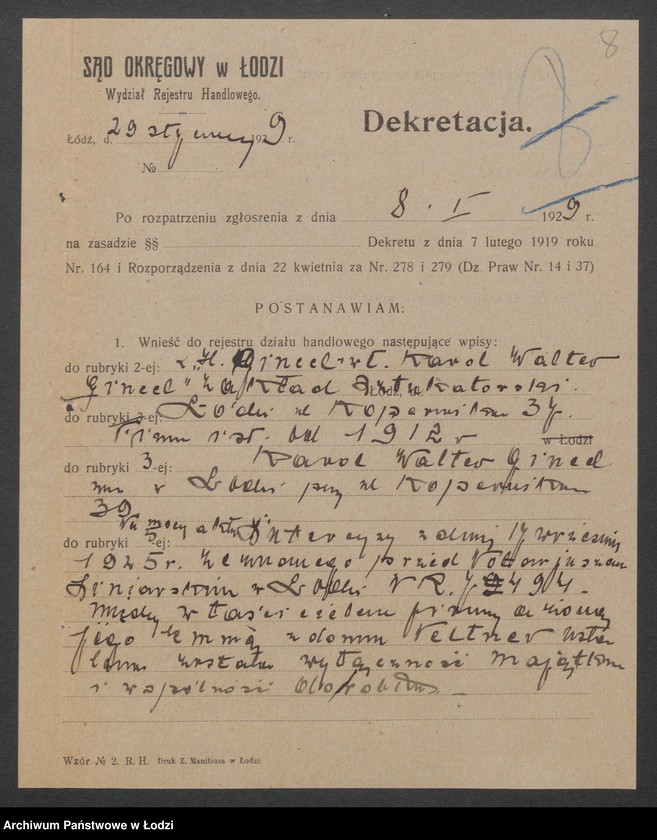 8
SĄD OKRĘGOWY w ŁODZI
Wydział Rejestru Handlowego.
Dekretacja.
Łódź, d. 29 stycznia 1929 r.
№
Po rozpatrzeniu zgłoszenia z dnia 8 . I 1929 r.
na zasadzie §§ Dekretu z dnia 7 lutego 1919 roku
Nr. 164 i Rozporządzenia z dnia 22 kwietnia za Nr. 278 i 279 (Dz. Praw Nr. 14 i 37)
POSTANAWIAM:
1. Wnieść do rejestru działu handlowego następujące wpisy:
do rubryki 2-ej: „H. wł. Karol Walter
" Zakład Sztukatorski.
Łódź, ul.
do rubryki 3-ej: Łódź ul Kopernika 37.
Firma ist. od 1912 r w Łodzi
do rubryki 3-ej: Karol Walter
zam w Łodzi przy ul Kopernika
39
do rubryki 5-ej: Na mocy aktu intercyzy z dnia 17 września
1925 r. zeznanego przed Notarjuszem
w Łodzi NR.
między właścicielem firmy a żoną
jego z domu
została wyłączność majątku
i wspólność dorobku
Wzór № 2. R. H. Druk Z. Manitiusa w Łodzi.
Archiwum Państwowe w Łodzi